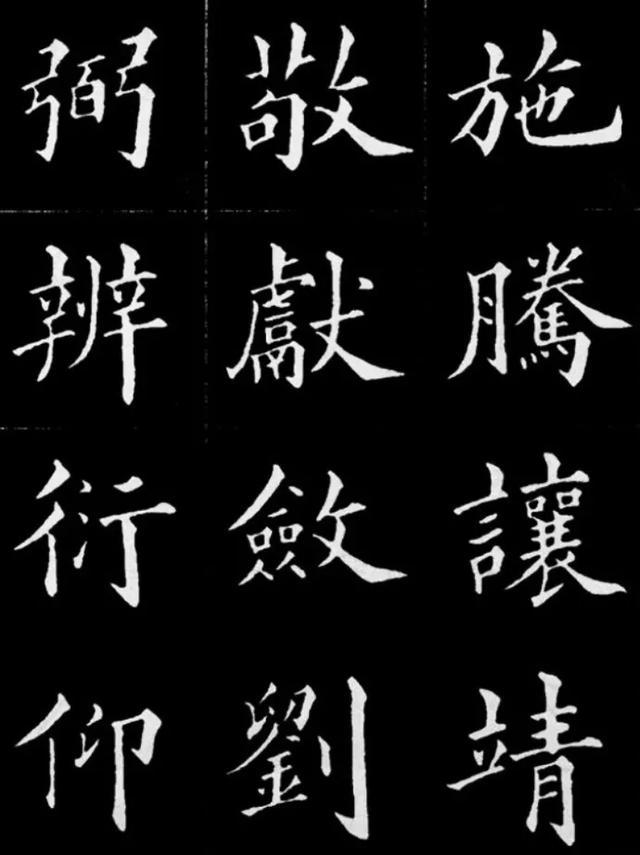 施騰讓靖
敬獻斂劉
弼辨衍仰